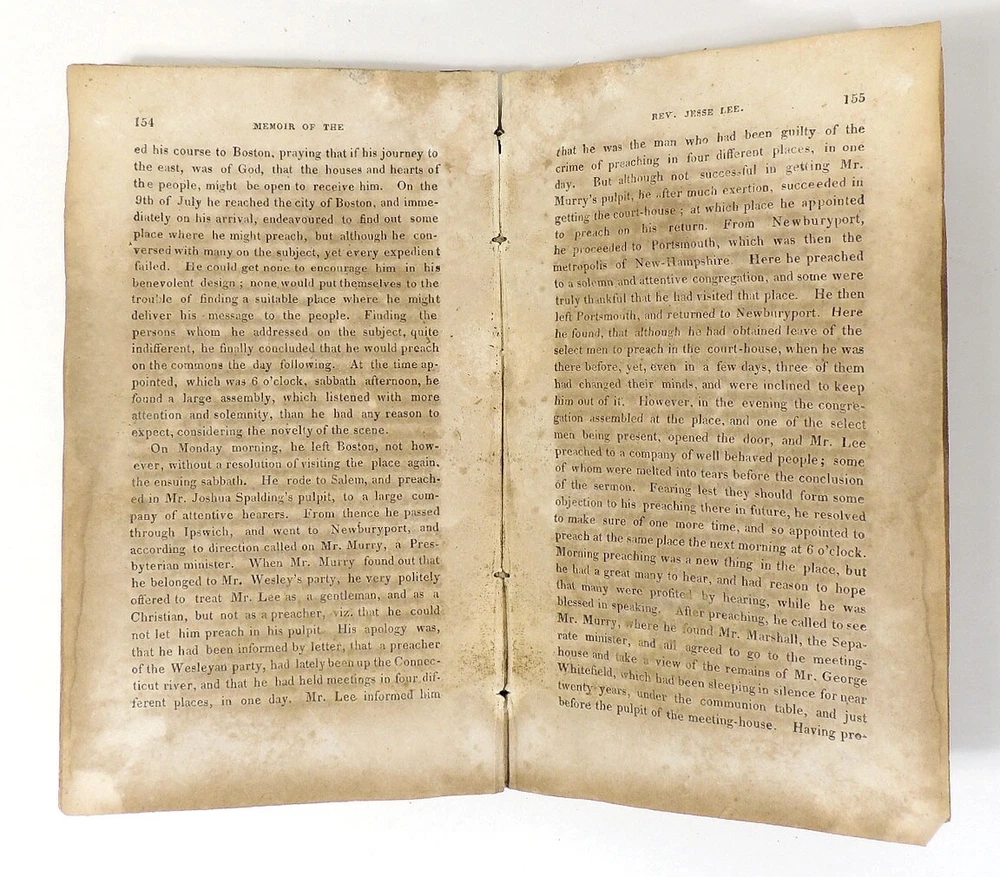 154
MEMOIR OF THE
ed his course to Boston, praying that if his journey to
the east, was of God, that the houses and hearts of
the people, might be open to receive him. On the
9th of July he reached the city of Boston, and imme-
diately on his arrival, endeavoured to find out some
place where he might preach, but although he con-
versed with many on the subject, yet every expedient
failed. He could get none to encourage him in his
benevolent design; none would put themselves to the
trouble of finding a suitable place where he might
deliver his message to the people. Finding the
persons whom he addressed on the subject, quite
indifferent, he finally concluded that he would preach
on the commons the day following. At the time ap-
pointed, which was 6 o'clock, sabbath afternoon, he
found a large assembly, which listened with more
attention and solemnity, than he had any reason to
expect, considering the novelty of the scene.
On Monday morning, he left Boston, not how-
ever, without a resolution of visiting the place again,
the ensuing sabbath. He rode to Salem, and preach-
ed in Mr. Joshua Spalding's pulpit, to a large com-
pany of attentive hearers. From thence he passed
through Ipswich, and went to Newburyport, and
according to direction called on Mr. Murry, a Pres-
byterian minister. When Mr. Murry found out that
he belonged to Mr. Wesley's party, he very politely
offered to treat Mr. Lee as a gentleman, and as a
Christian, but not as a preacher, viz. that he could
not let him preach in his pulpit. His apology was,
that he had been informed by letter, that a preacher
of the Wesleyan party, had lately been up the Connec-
ticut river, and that he had held meetings in four dif-
ferent places, in one day. Mr. Lee informed him
REV. JESSE LEE.
155
that he was the man who had been guilty of the
crime of preaching in four different places, in one
day. But although not successful in getting Mr.
Murry's pulpit, he after much exertion, succeeded in
getting the court-house; at which place he appointed
to preach on his return. From Newburyport,
he proceeded to Portsmouth, which was then the
metropolis of New-Hampshire. Here he preached
to a solemn and attentive congregation, and some were
truly thankful that he had visited that place. He then
left Portsmouth, and returned to Newburyport. Here
he found, that although he had obtained leave of the
select men to preach in the court-house, when he was
there before, yet, even in a few days, three of them
had changed their minds, and were inclined to keep
him out of it. However, in the evening the congre-
gation assembled at the place, and one of the select
men being present, opened the door, and Mr. Lee
preached to a company of well behaved people; some
of whom were melted into tears before the conclusion
of the sermon. Fearing lest they should form some
objection to his preaching there in future, he resolved
to make sure of one more time, and so appointed to
preach at the same place the next morning at 6 o'clock.
Morning preaching was a new thing in the place, but
he had a great many to hear, and had reason to hope
that many were profited by hearing, while he was
blessed in speaking. After preaching, he called to see
Mr. Murry, where he found Mr. Marshall, the Sepa-
rate minister, and all agreed to go to the meeting-
house and take a view of the remains of Mr. George
Whitefield, which had been sleeping in silence for near
twenty years, under the communion table, and just
before the pulpit of the meeting-house. Having pro-